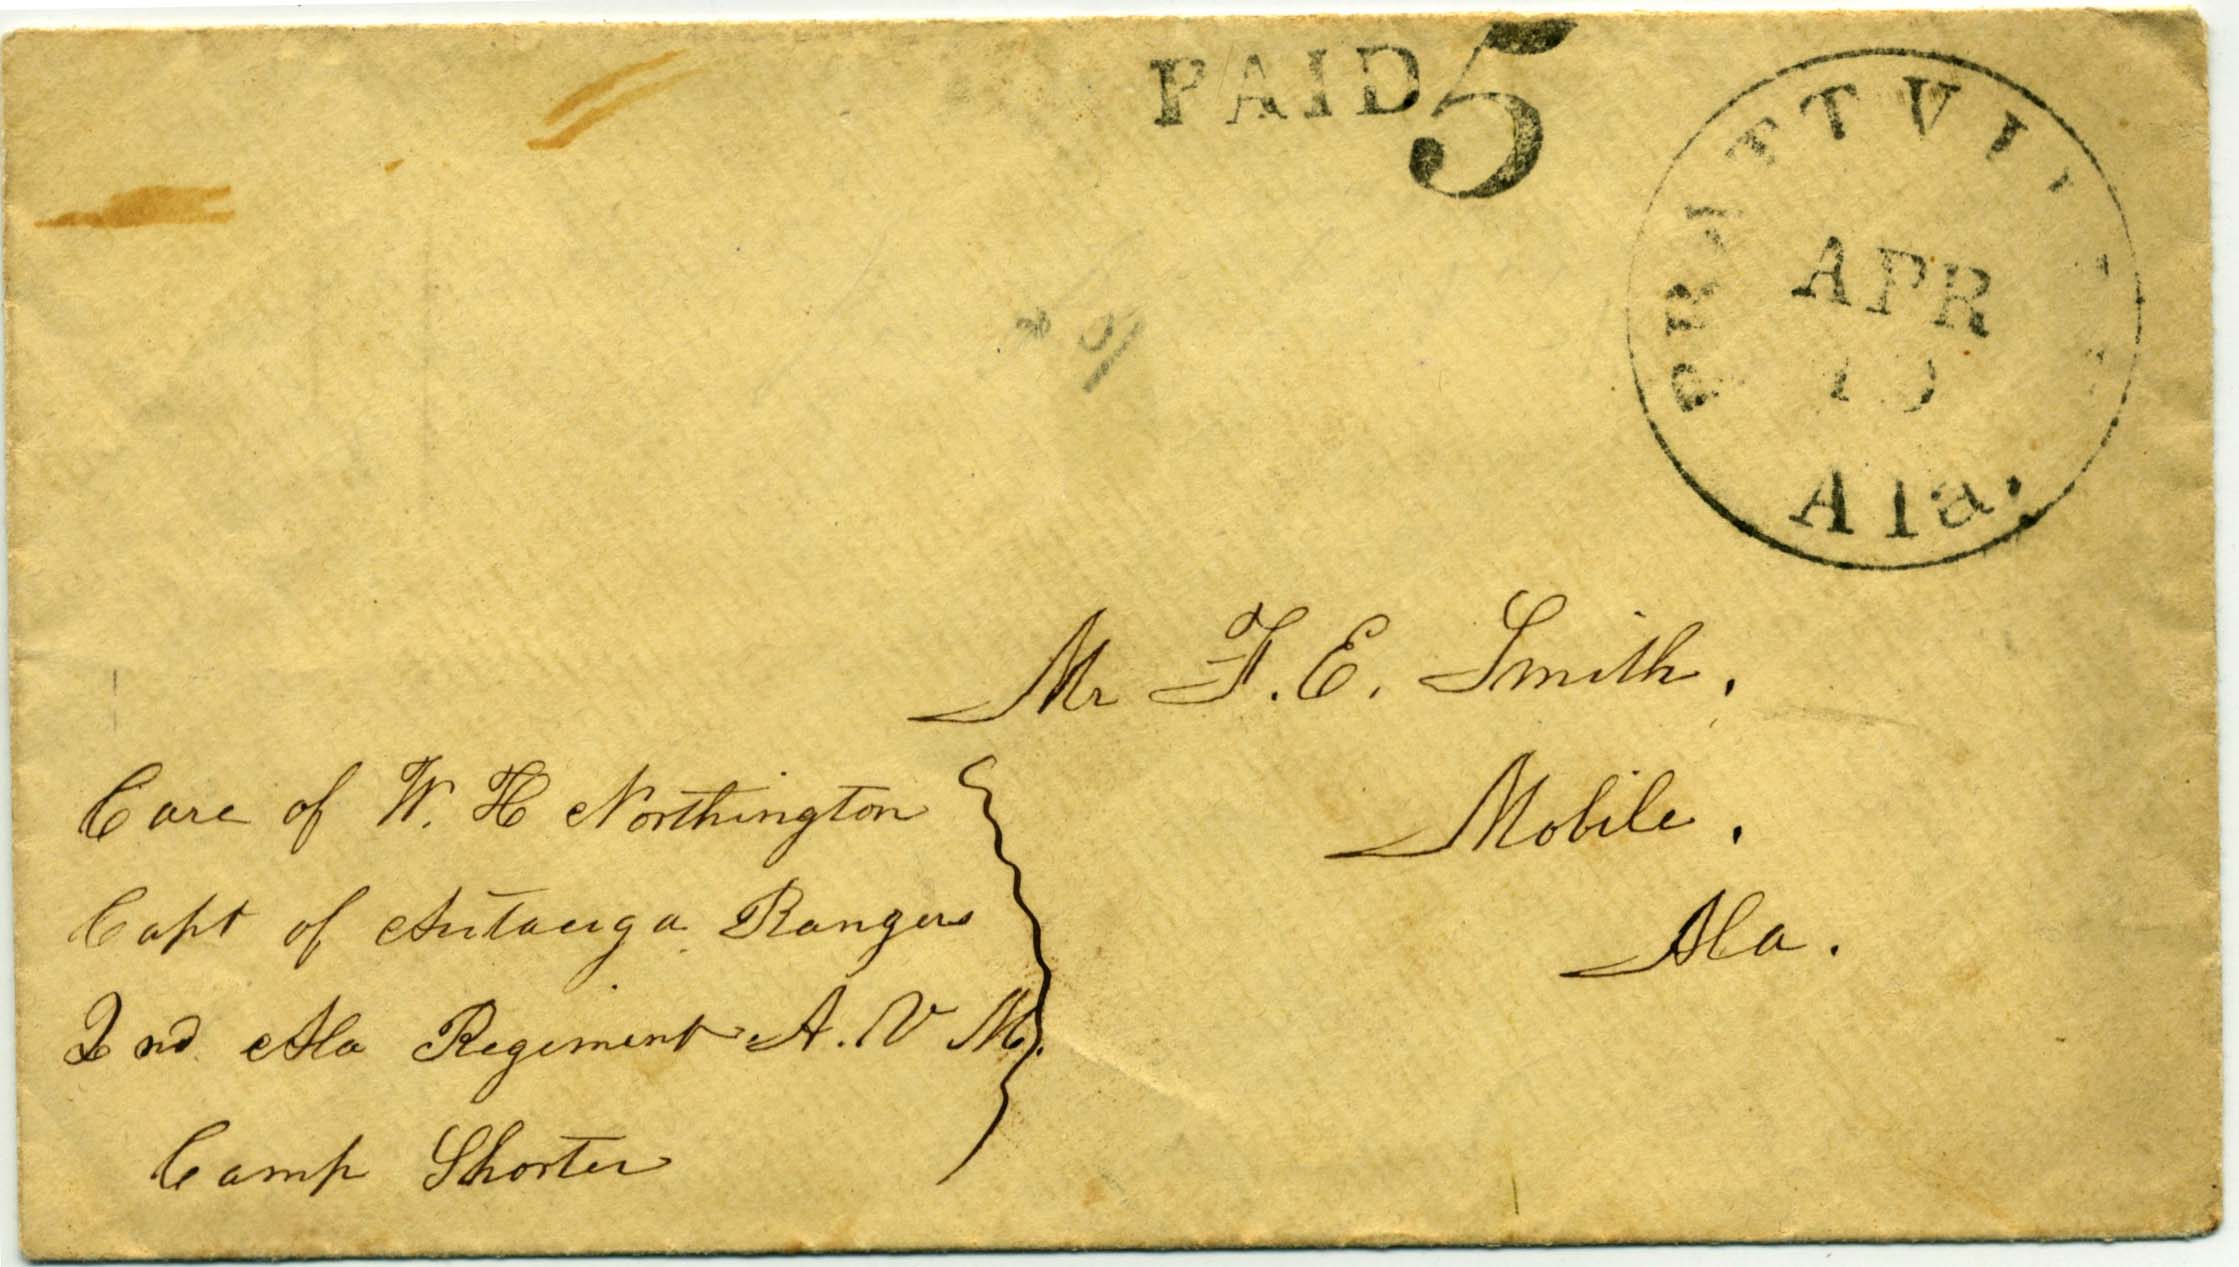 PAID 5
PRATTVILLE
APR
Ala.
Mr F. E. Smith.
Mobile.
Ala.
Care of W. H Northington
Capt of Autauga Rangers
2nd Ala Regiment A. V M.
Camp Shorter